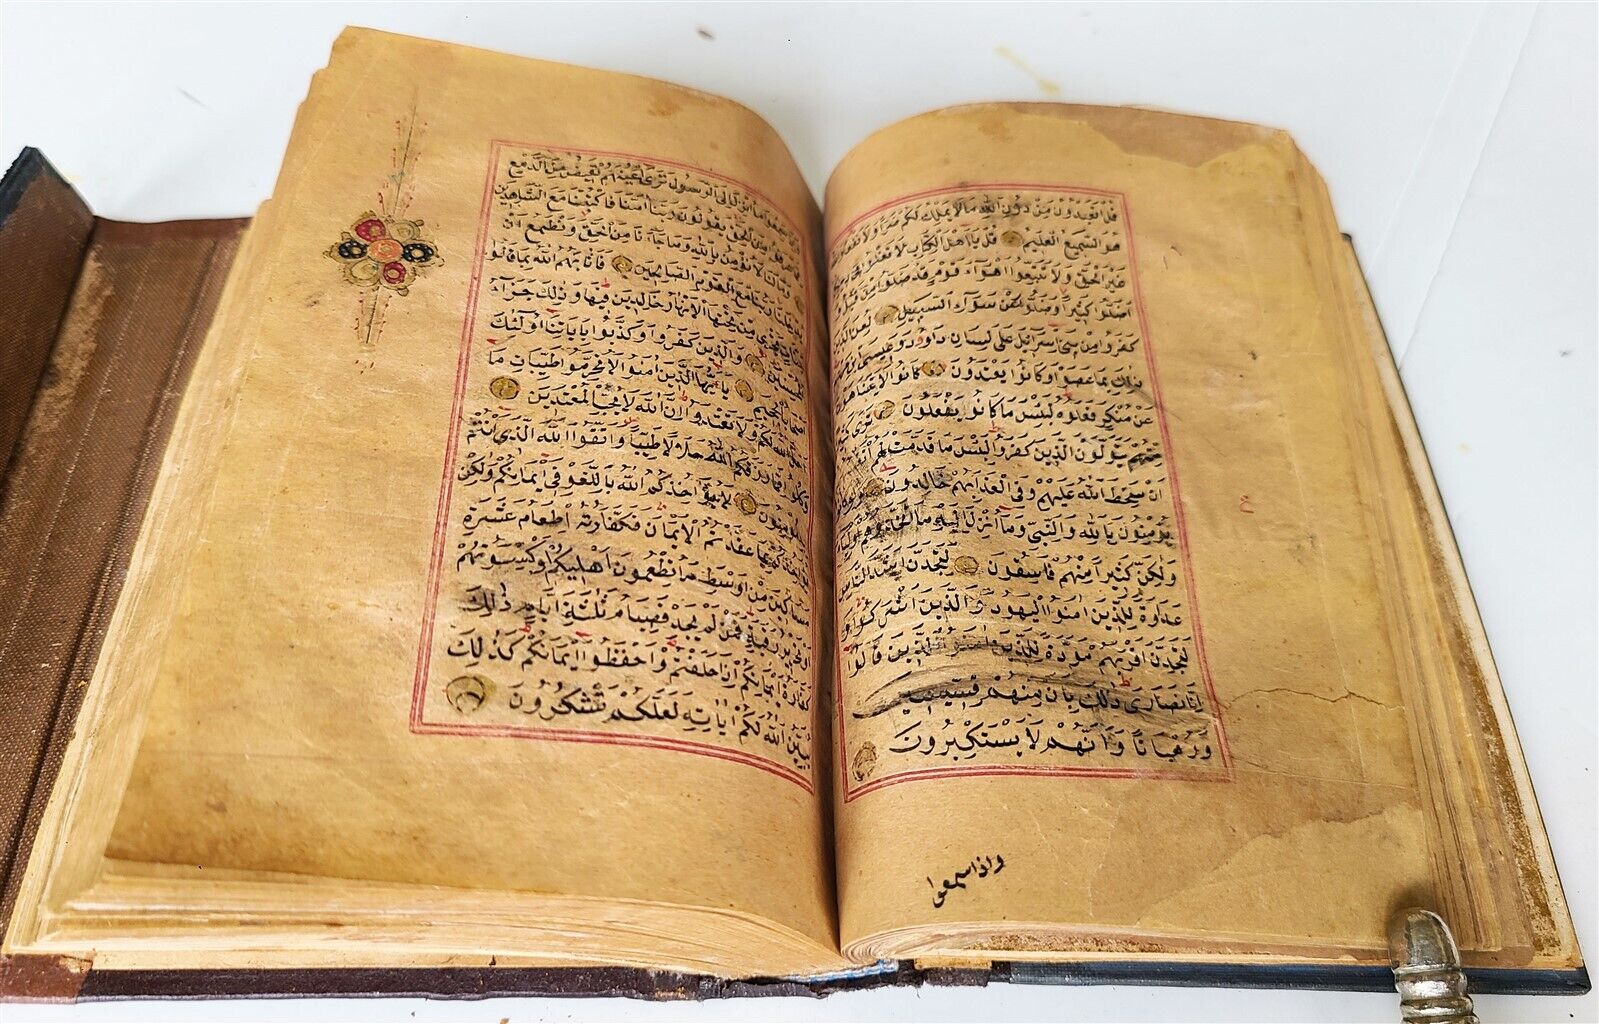 قل اتعبدون من دون الله ما لا يملك لكم ضرا ولا نفعا
هو السميع العليم قل يا اهل الكتاب لا تغلوا في دينكم
غير الحق ولا تتبعوا اهواء قوم قد ضلوا من قبل و
اضلوا كثيرا وضلوا عن سواء السبيل لعن الذين
كفروا من بني اسرائيل على لسان داود وعيسى
ذلك بما عصوا وكانوا يعتدون كانوا لا يتناهون
عن منكر فعلوه لبئس ما كانوا يفعلون ترى كثيرا
منهم يتولون الذين كفروا لبئس ما قدمت لهم انفسهم
ان سخط الله عليهم وفي العذاب هم خالدون ولو كانوا
يؤمنون بالله والنبي وما انزل اليه ما اتخذوهم اولياء
ولكن كثيرا منهم فاسقون لتجدن اشد الناس
عداوة للذين امنوا اليهود والذين اشركوا و
لتجدن اقربهم مودة للذين امنوا الذين قالوا
انا نصارى ذلك بان منهم قسيسين
ورهبانا وانهم لا يستكبرون
ع
واذا سمعوا
ما انزل الى الرسول ترى اعينهم تفيض من الدمع
مما عرفوا من الحق يقولون ربنا امنا فاكتبنا مع الشاهدين
وما لنا لا نؤمن بالله وما جاءنا من الحق ونطمع ان
يدخلنا ربنا مع القوم الصالحين فاثابهم الله بما قالوا
جنات تجري من تحتها الانهار خالدين فيها وذلك جزاء
المحسنين والذين كفروا وكذبوا باياتنا اولئك
اصحاب الجحيم يا ايها الذين امنوا لا تحرموا طيبات ما
احل الله لكم ولا تعتدوا ان الله لا يحب المعتدين
وكلوا مما رزقكم الله حلالا طيبا واتقوا الله الذي انتم
به مؤمنون لا يؤاخذكم الله باللغو في ايمانكم ولكن
يؤاخذكم بما عقدتم الايمان فكفارته اطعام عشرة
مساكين من اوسط ما تطعمون اهليكم او كسوتهم
او تحرير رقبة فمن لم يجد فصيام ثلثة ايام ذلك
كفارة ايمانكم اذا حلفتم واحفظوا ايمانكم كذلك
يبين الله لكم اياته لعلكم تشكرون